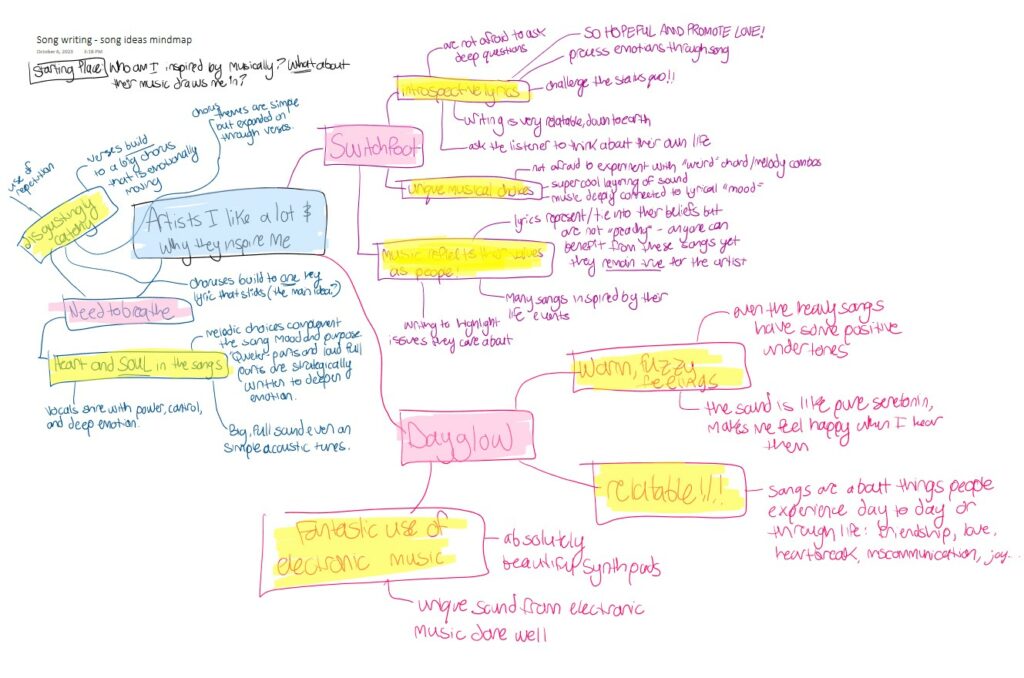 Song writing - song ideas mindmap
October 6, 2023 3:18 PM
Starting Place Who am I inspired by musically? What about
their music draws me in?
Artists I like a lot &
why they inspire me
disgustingly
catchy
use of
repetition
verses build
to a big chorus
that is emotionally
moving
chorus
themes are simple
but expanded on
through verses.
choruses build to one key
lyric that sticks (the main idea?)
Needtobreathe
Heart and SOUL in the songs
melodic choices complement
the song mood and purpose.
"Quieter" parts and loud full
parts are strategically
written to deepen
emotion.
Vocals shine with power, control,
and deep emotion.
Big, full sound even on
simple acoustic tunes.
Switchfoot
introspective lyrics
are not afraid to ask
deep questions
SO HOPEFUL AND PROMOTE LOVE!
process emotions through song
challenge the status quo!!
writing is very relatable, down to earth
ask the listener to think about their own life
unique musical choices
not afraid to experiment with "weird" chord/melody combos
super cool layering of sound
music deeply connected to lyrical "mood"
music reflects their values
as people!
lyrics represent/tie into their beliefs but
are not "preachy" - anyone can
benefit from these songs yet
they remain true for the artist
Many songs inspired by their
life events
writing to highlight
issues they care about
Dayglow
warm, fuzzy
feelings
even the heavy songs
have some positive
undertones
the sound is like pure seretonin,
makes me feel happy when I hear
them
relatable!!!!
songs are about things people
experience day to day or
through life: friendship, love,
heartbreak, miscommunication, joy...
Fantastic use of
electronic music
absolutely
beautiful synth pads
unique sound from electronic
music done well